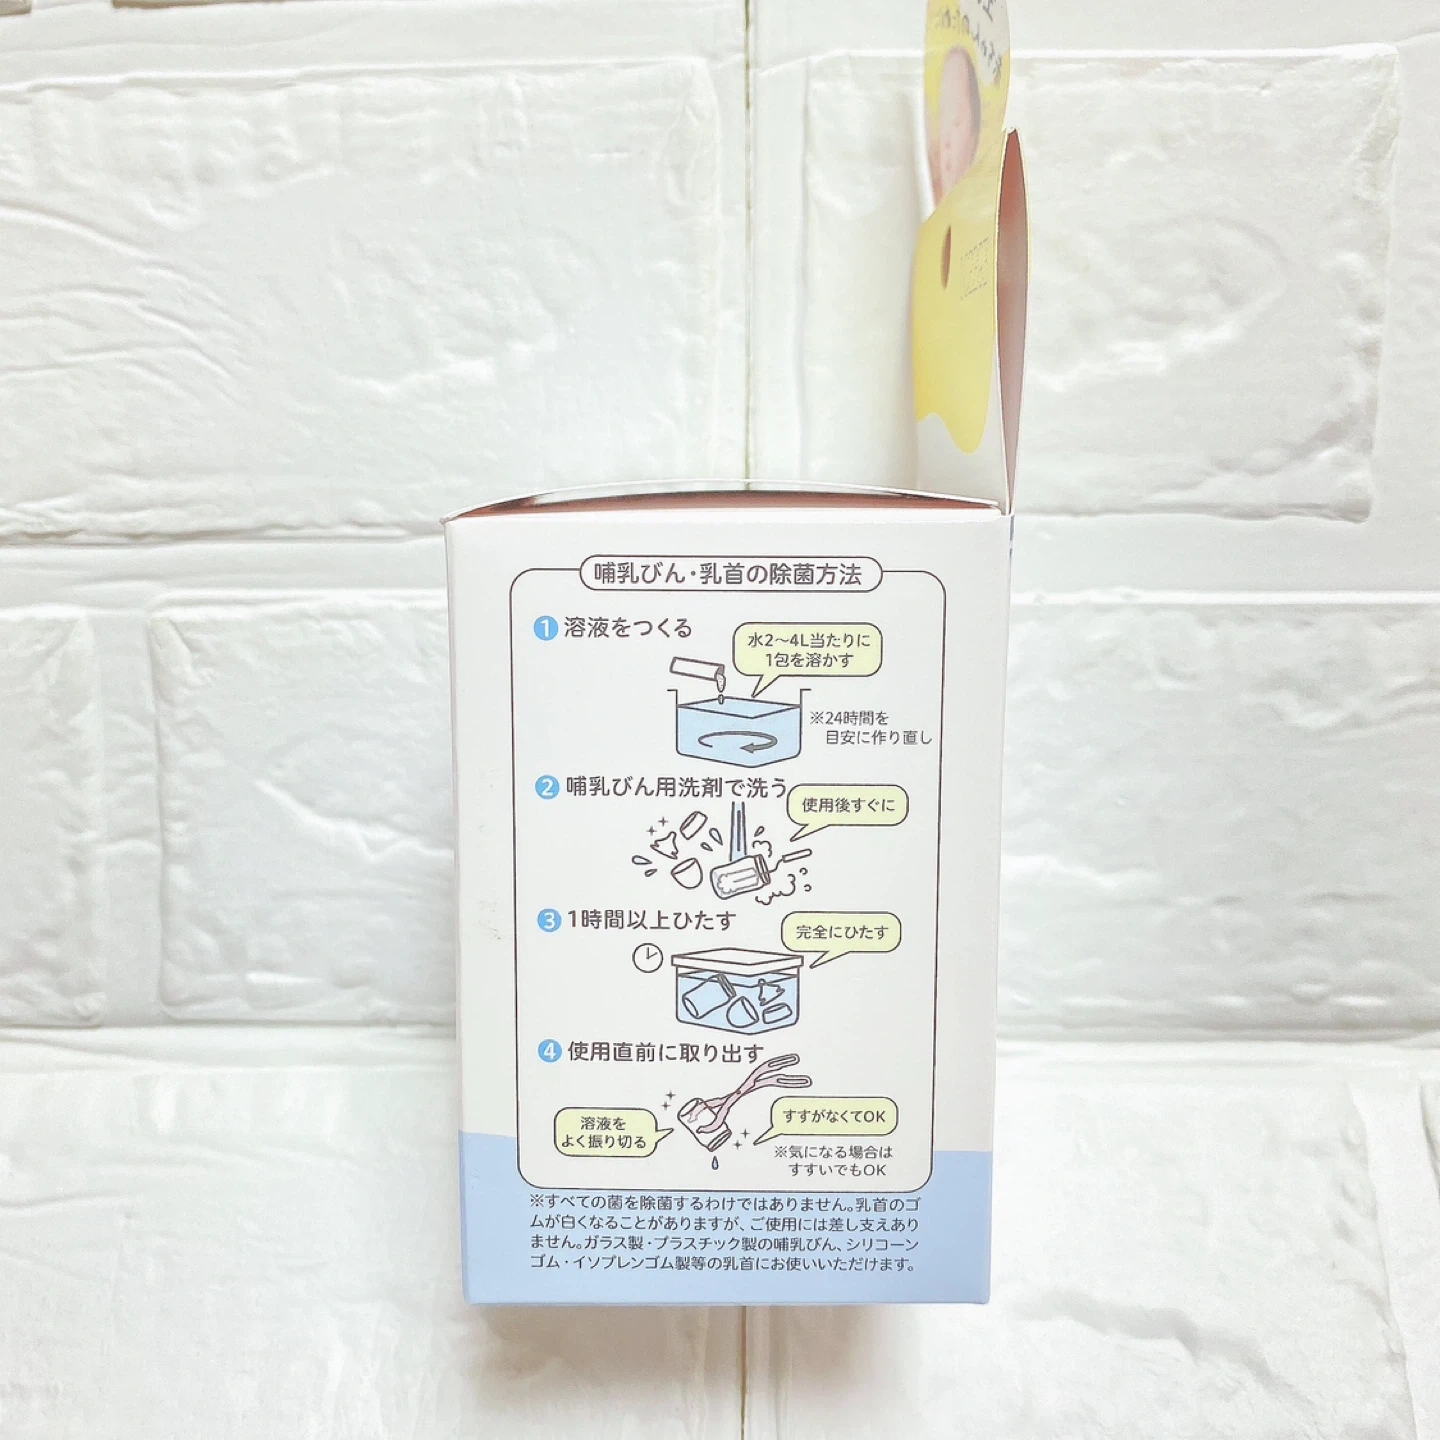 哺乳びん・乳首の除菌方法
1 溶液をつくる
水2〜4L当たりに
1包を溶かす
※24時間を
目安に作り直し
2 哺乳びん用洗剤で洗う
使用後すぐに
3 1時間以上ひたす
完全にひたす
4 使用直前に取り出す
溶液を
よく振り切る
すすがなくてOK
※気になる場合は
すすいでもOK
※すべての菌を除菌するわけではありません。乳首のゴ
ムが白くなることがありますが、ご使用には差し支えあり
ません。ガラス製・プラスチック製の哺乳びん、シリコーン
ゴム・イソプレンゴム製等の乳首にお使いいただけます。